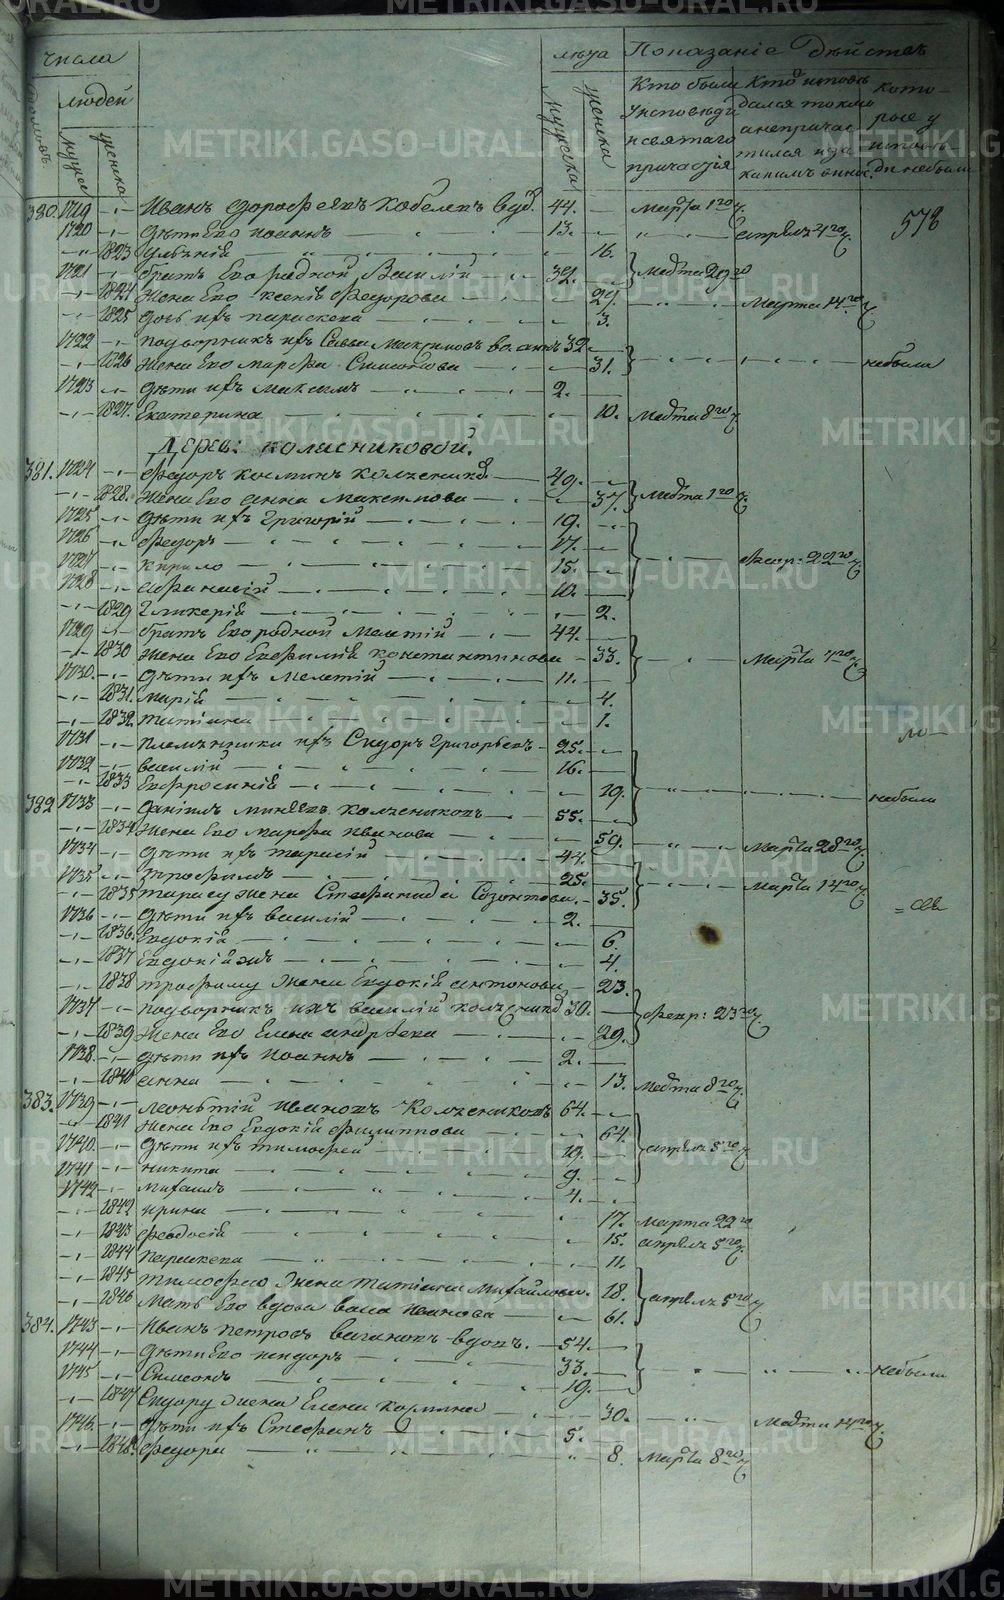 METRIKI.GASO-URAL.RU
числа
лѣта Показаніе Дѣйствъ
людей
мужеска женска
Кто были У исповѣди и святаго причастія
Кто исповѣдался токмо а непричастился и за какимъ винос.
которые у исповѣди небыли
578
380. 1719 Иванъ Кобелевъ вдов. 44. Марта 1го ч.
1720 дѣти Его Иоаннъ 13. апрѣля 4го ч.
1823 16.
1721 братъ Его родной Василій 32. Марта 29го
1824 Жена Его Ксенія Федорова 29. Марта 14го ч.
1825 дочь ихъ Параскева 3.
1722 подворникъ ихъ Савва Максимовъ 32.
1826 Жена Его Марфа Симеонова 31. небыли
1723 дѣти ихъ Максимъ 2.
1827. Екатерина 10. Марта 8го ч.
Дерев: Колесниковой.
381. 1724 Федоръ Козминъ Колесников 49.
1828. Жена Его Анна Максимова 37. Марта 1го ч.
1725 дѣти ихъ Григорій 19.
1726 Федоръ 17.
1727 Кирило 15. Февр: 22го ч.
1728 Афанасій 10.
1829 Гликерія 2.
1729 братъ Его родной Мелетій 44.
1830 Жена Его Евфимія Константинова 33. Марта
1730. дѣти ихъ Мелетій 11.
1831. Марія 4.
1832. Татіана 1.
1731 племянники ихъ Сидоръ Григорьевъ 25.
1732 Василій 16.
1833 Евфросинія 19. небыли
382 1733 Даніилъ Минѣевъ Колесниковъ 55.
1834 Жена Его Марфа Иванова 59. Марта 28го ч.
1734 дѣти ихъ Тарасій 44.
1735 Трофимъ 25. Марта 14го ч.
1835 Тарасу Жена Стефанида Созонтова 35.
1736 дѣти ихъ Василій 2.
1836. Евдокія 6.
1837 Евдокія жъ 4.
1838 Трофиму Жена Евдокія Антонова 23.
1737 подворникъ ихъ Василій Колесников 30. Февр: 23го ч.
1839 Жена Его Елена Андреева 29.
1738. дѣти ихъ Иоаннъ 2.
1840 Анна 13. Марта 8го ч.
383. 1739 Леонтій Ивановъ Колесниковъ 64.
1841 Жена Его Евдокія Филиппова 64.
1740. дѣти ихъ Тимофей 19. апрѣля 5го ч.
1741 Никита 9.
1742 Михаилъ 4.
1842 Ирина 17. Марта 22го
1843 Феодосія 15. апрѣля 5го ч.
1844 Параскева 11.
1845 Тимофею Жена Татіана Михайлова 18. апрѣля 5го ч.
1846 Мать Его вдова Васса Иванова 61.
384. 1743 Иванъ Петровъ Вагановъ вдовъ. 54.
1744 дѣти Его 33. небыли
1745 Симеонъ 19.
1847 Сидору Жена Елена Козмина 30. Марта 14го ч.
1746. дѣти ихъ Стефанъ 5.
1848. Федора 8. Марта 8го ч.